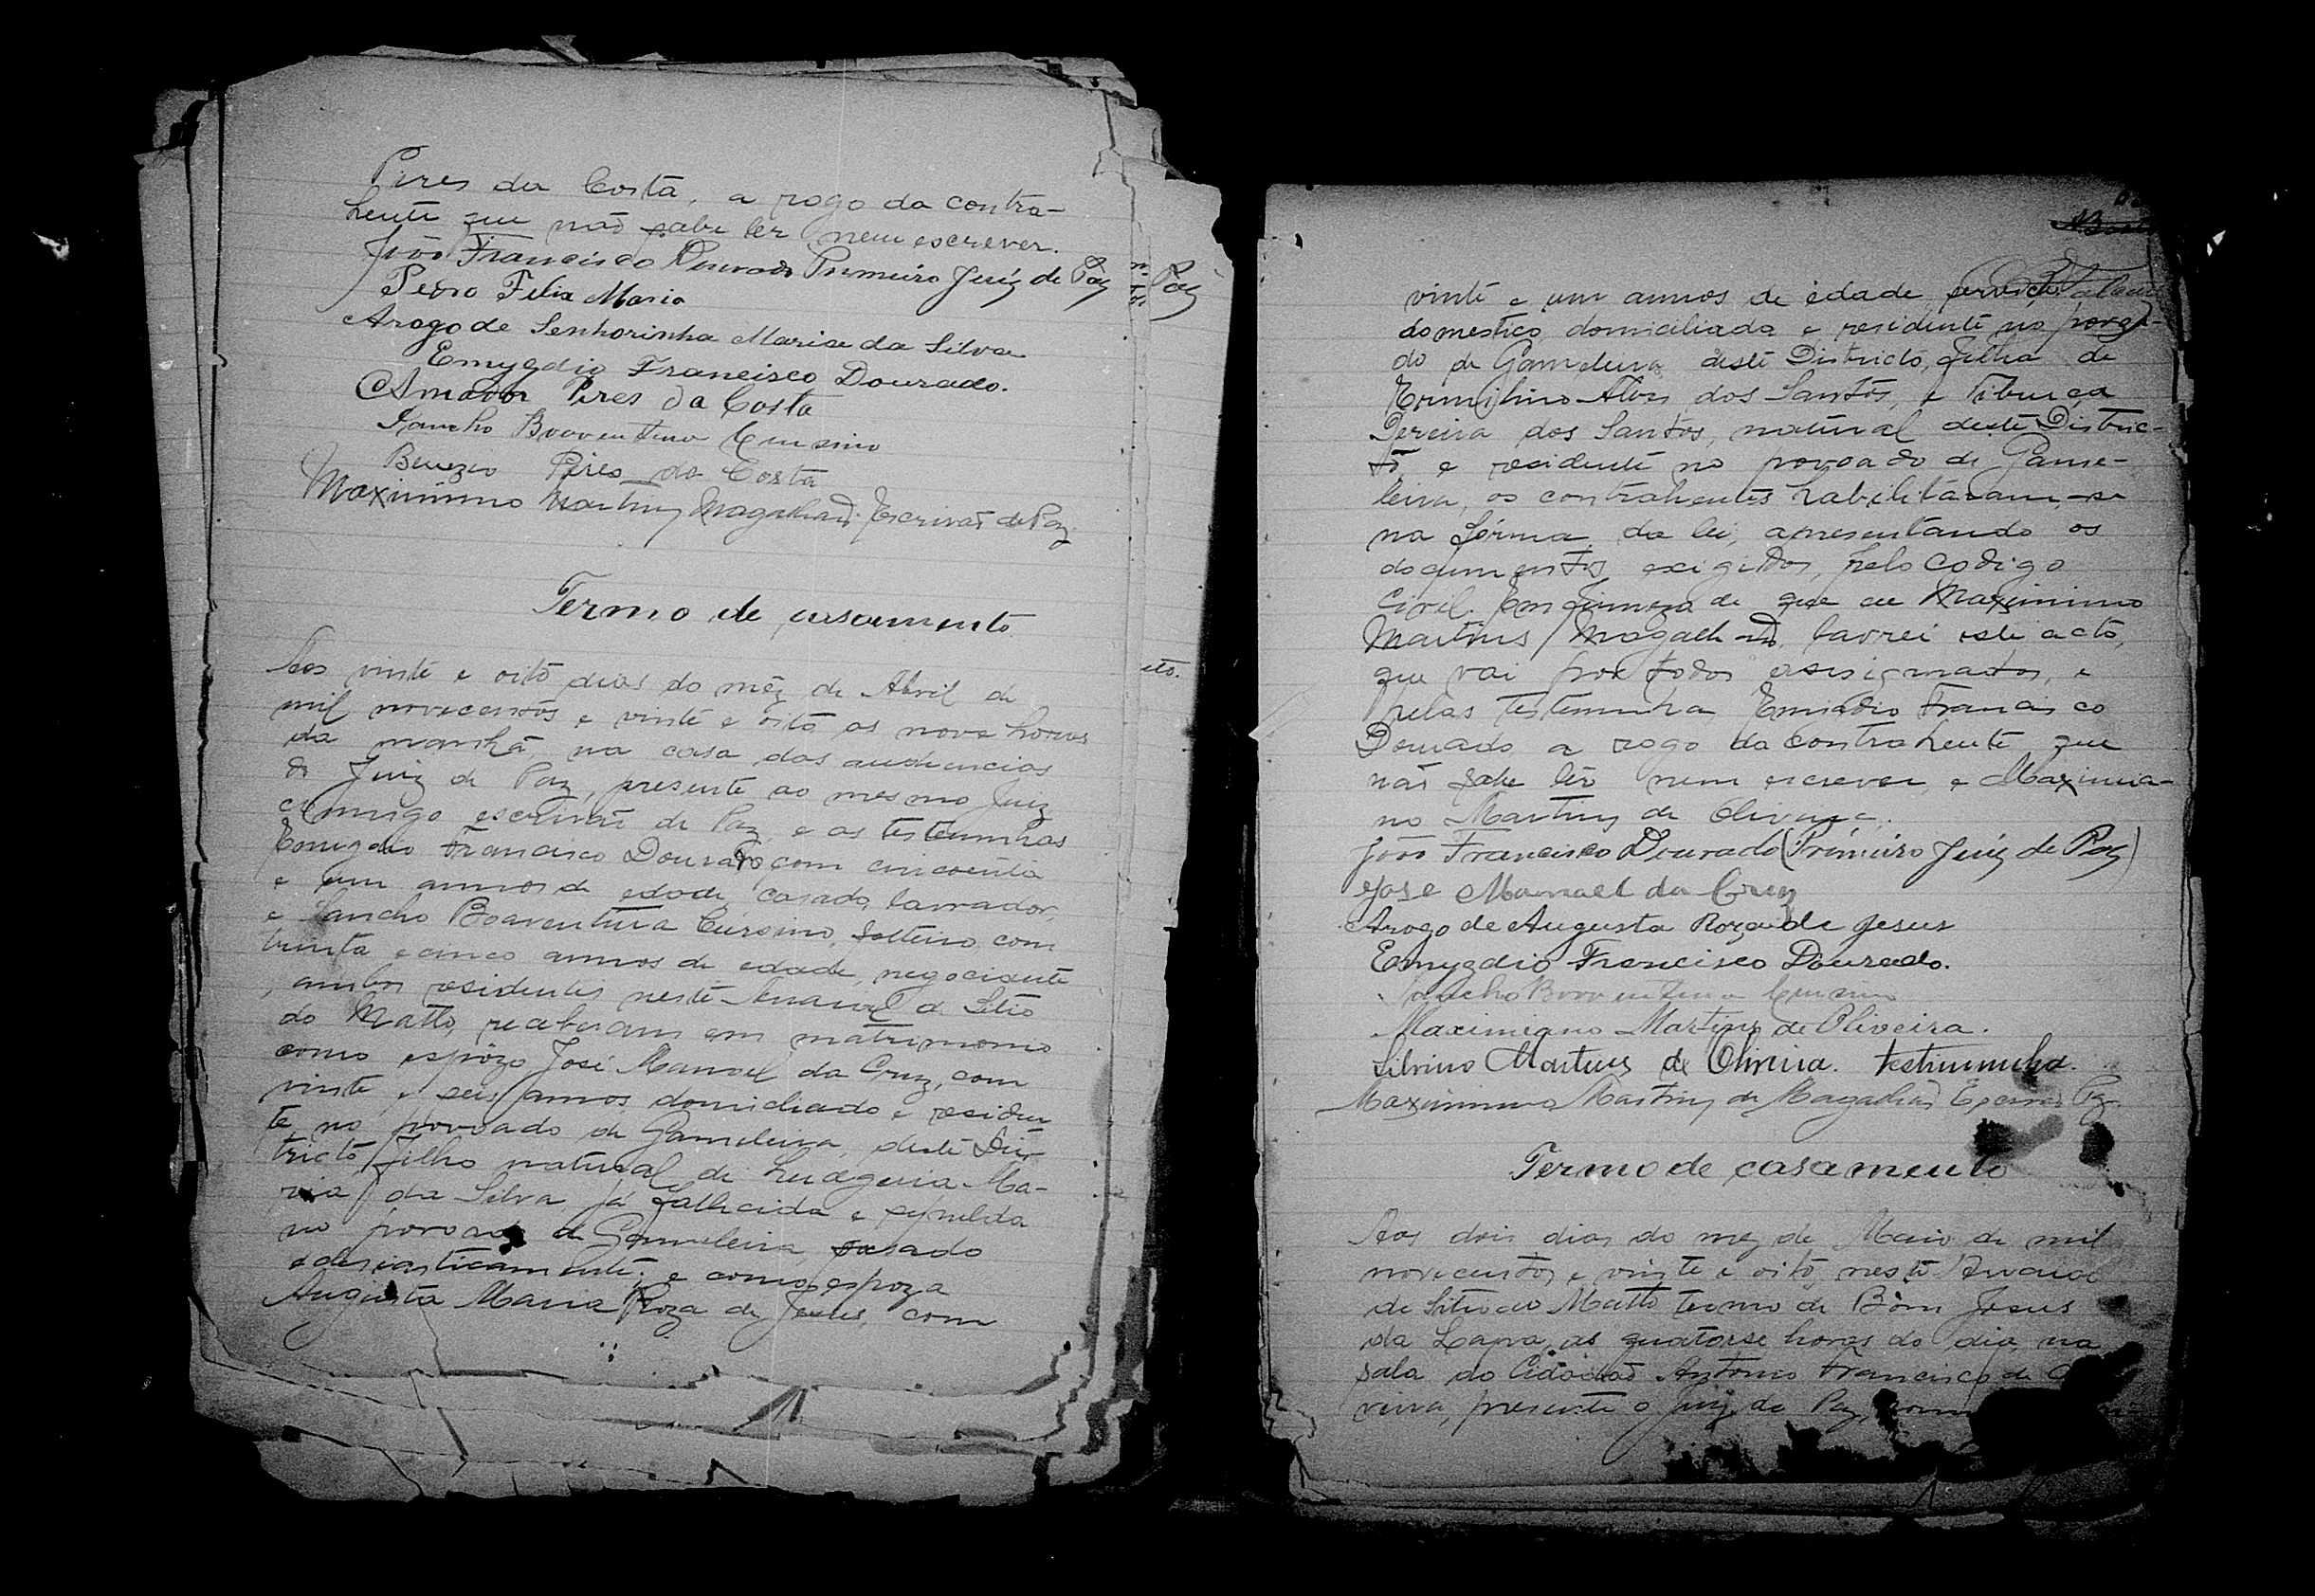 Pires da Costa, a rogo da contra-
hente que não sabe ler nem escrever.
João Francisco Dourado Primeiro Juiz de Paz
Pedro Felix Maria
Arogo de Senhorinha Maria da Silva
Emygdio Francisco Dourado.
Amador Pires da Costa
Sancho Boaventura Cursino
Pires da Costa
Maximino Martins Magalhães Escrivão de Paz
Paz
Termo de casamento
eto.
Aos vinte e oito dias do mêz de Abril de
mil novecentos e vinte e oito as nove horas
da manhã, na casa das audiencias
do Juiz de Paz, presente ao mesmo Juiz
comigo escrivão de Paz, e as testemunhas
Emigdio Francisco Dourado, com cincoenta
e um annos de edade, casado, lavrador,
e Sancho Boaventura Cursino, solteiro, com
trinta e cinco annos de edade, negociante
, ambos residentes neste Arraial de Sitio
do Matto, receberam em matrimonio
como espôzo José Manoel da Cruz, com
vinte e seis annos domiciliado e residen
te no povoado de Gameleira, deste Dis-
tricto, filho natural de Ma-
ria da Silva, já fallecida e sepulda
no povoado de Gameleira, casado
eclesiasticamente; e como espoza
Augusta Maria Roza de Jesus, com
vinte e um annos de edade,
domestico, domiciliada e residente no povoa-
do de Gameleira deste Districto, filha de
Alves dos Santos, e Tiburca
Pereira dos Santos, natural deste Distric-
to, e residente no povoado de Game-
leira, os contrahentes habilitaram-se
na fórma da lei, apresentando os
documentos exigidos, pelo Codigo
Civil. Em firmeza de que eu Maximino
Martins Magalhães, lavrei este acto,
que vai por todos assignados, e
pelas testemunha Emidio Francisco
Dourado a rogo da contrahente que
não sabe lêr nem escrever, e Maximia-
no Martins de Oliveira.
João Francisco Dourado (Primeiro Juiz de Paz)
Jose Manoel da Cruz
Arogo de Augusta Roza de Jesus
Emygdio Francisco Dourado.
Sancho Boaventura Cursino
Maximiano Martins de Oliveira.
Silvino Martins de Oliveira. testimunha.
Maximino Martins de Magalhães Paz.
Termo de casamento
Aos dois dias do mez de Maio de mil
novecentos e vinte e oito, neste Arraial
de Sitio do Matto termo de Bom Jesus
da Lapa, as quatorse horas do dia, na
sala do Cidadão Antonio Francisco de
veira, presente o Juiz de Paz,